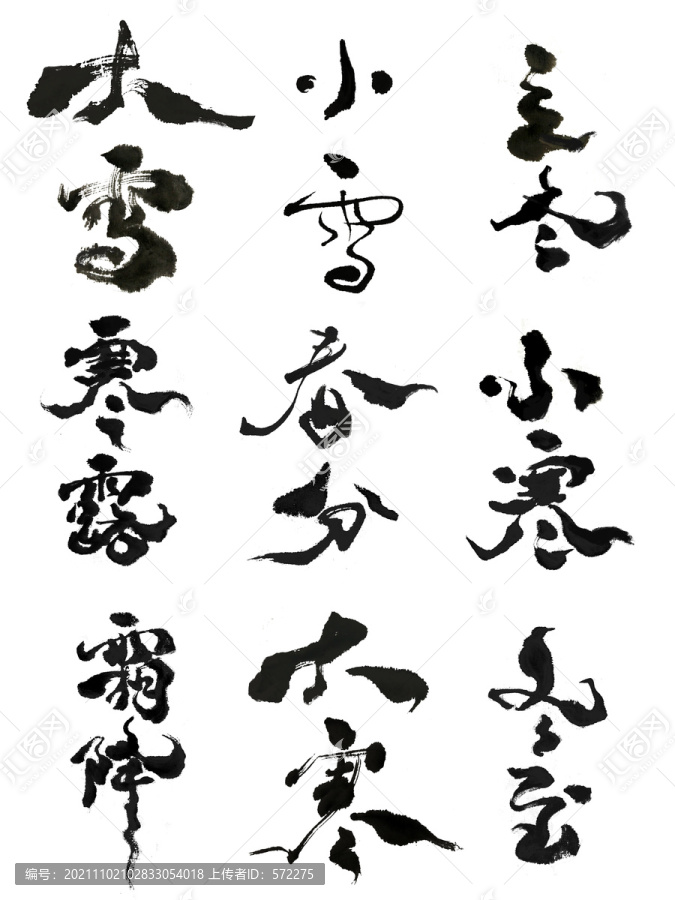 大雪
小雪
立冬
寒露
春分
小寒
霜降
大寒
冬至
编号：20211102102833054018 上传者ID：572275
汇图网